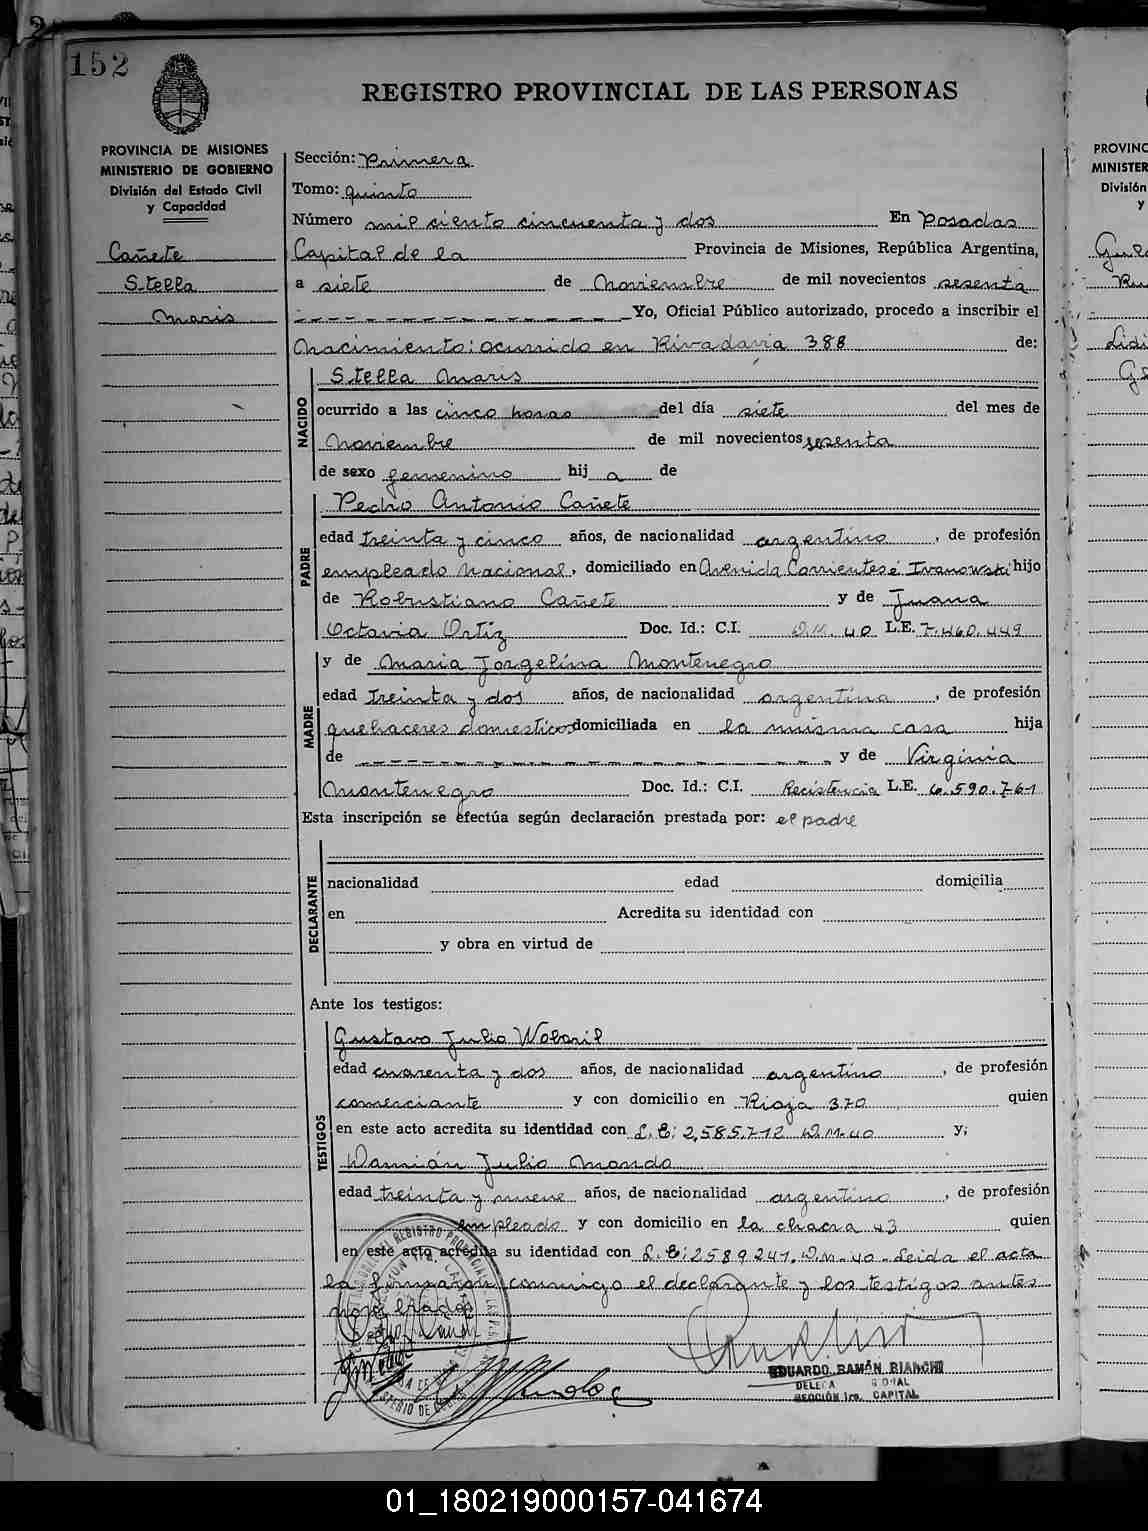 152
REGISTRO PROVINCIAL DE LAS PERSONAS
PROVINCIA DE MISIONES
MINISTERIO DE GOBIERNO
División del Estado Civil
y Capacidad
Cañete
Stella
Maris
Sección: Primera
Tomo: quinto
Número mil ciento cincuenta y dos En Posadas
Capital de la Provincia de Misiones, República Argentina,
a siete de Noviembre de mil novecientos sesenta
Yo, Oficial Público autorizado, procedo a inscribir el
Nacimiento: ocurrido en Rivadavia 388 de:
NACIDO
Stella Maris
ocurrido a las cinco horas del día siete del mes de
Noviembre de mil novecientos sesenta
de sexo femenino hij a de
PADRE
Pedro Antonio Cañete
edad treinta y cinco años, de nacionalidad argentino, de profesión
empleado Nacional, domiciliado en Avenida Corrientes é Ivanowski hijo
de Robustiano Cañete y de Juana
Octavia Ortiz Doc. Id.: C.I. D.M. 40 L.E. 7.460.449
MADRE
y de Maria Jorgelina Montenegro
edad treinta y dos años, de nacionalidad argentina, de profesión
quehaceres domesticos domiciliada en la misma casa hija
de y de Virginia
Montenegro Doc. Id.: C.I. Resistencia L.E. 6.590.761
Esta inscripción se efectúa según declaración prestada por: el padre
DECLARANTE
nacionalidad edad domicilia
en Acredita su identidad con
y obra en virtud de
Ante los testigos:
TESTIGOS
Gustavo Julio
edad cuarenta y dos años, de nacionalidad argentino, de profesión
comerciante y con domicilio en Rioja 370 quien
en este acto acredita su identidad con L.E: 2.585.712 D.M. 40 y;
Damián Julio Mando
edad treinta y nueve años, de nacionalidad argentino, de profesión
empleado y con domicilio en la chacra 43 quien
en este acto acredita su identidad con L.E: 2589241. D.M. 40 - Leida el acta
la firma conmigo el declarante y los testigos antes
EDUARDO RAMÓN BIANCHI
SECCIÓN 1ra. CAPITAL
PROVINC
MINISTER
División
y
01_180219000157-041674